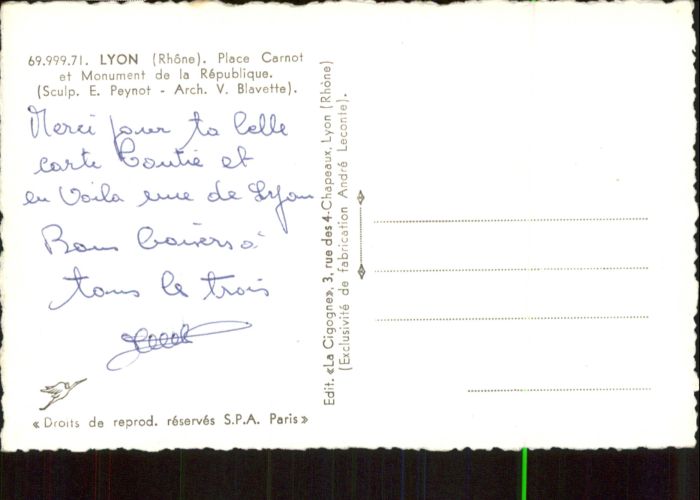 69.999.71. LYON (Rhône). Place Carnot
et Monument de la République.
(Sculp. E. Peynot - Arch. V. Blavette).
Merci pour ta belle
carte et
en Voila une de Lyon
Bons baisers a
tous le trois
Edit. «La Cigogne», 3, rue des 4-Chapeaux, Lyon (Rhône)
(Exclusivité de fabrication André Leconte).
« Droits de reprod. réservés S.P.A. Paris »